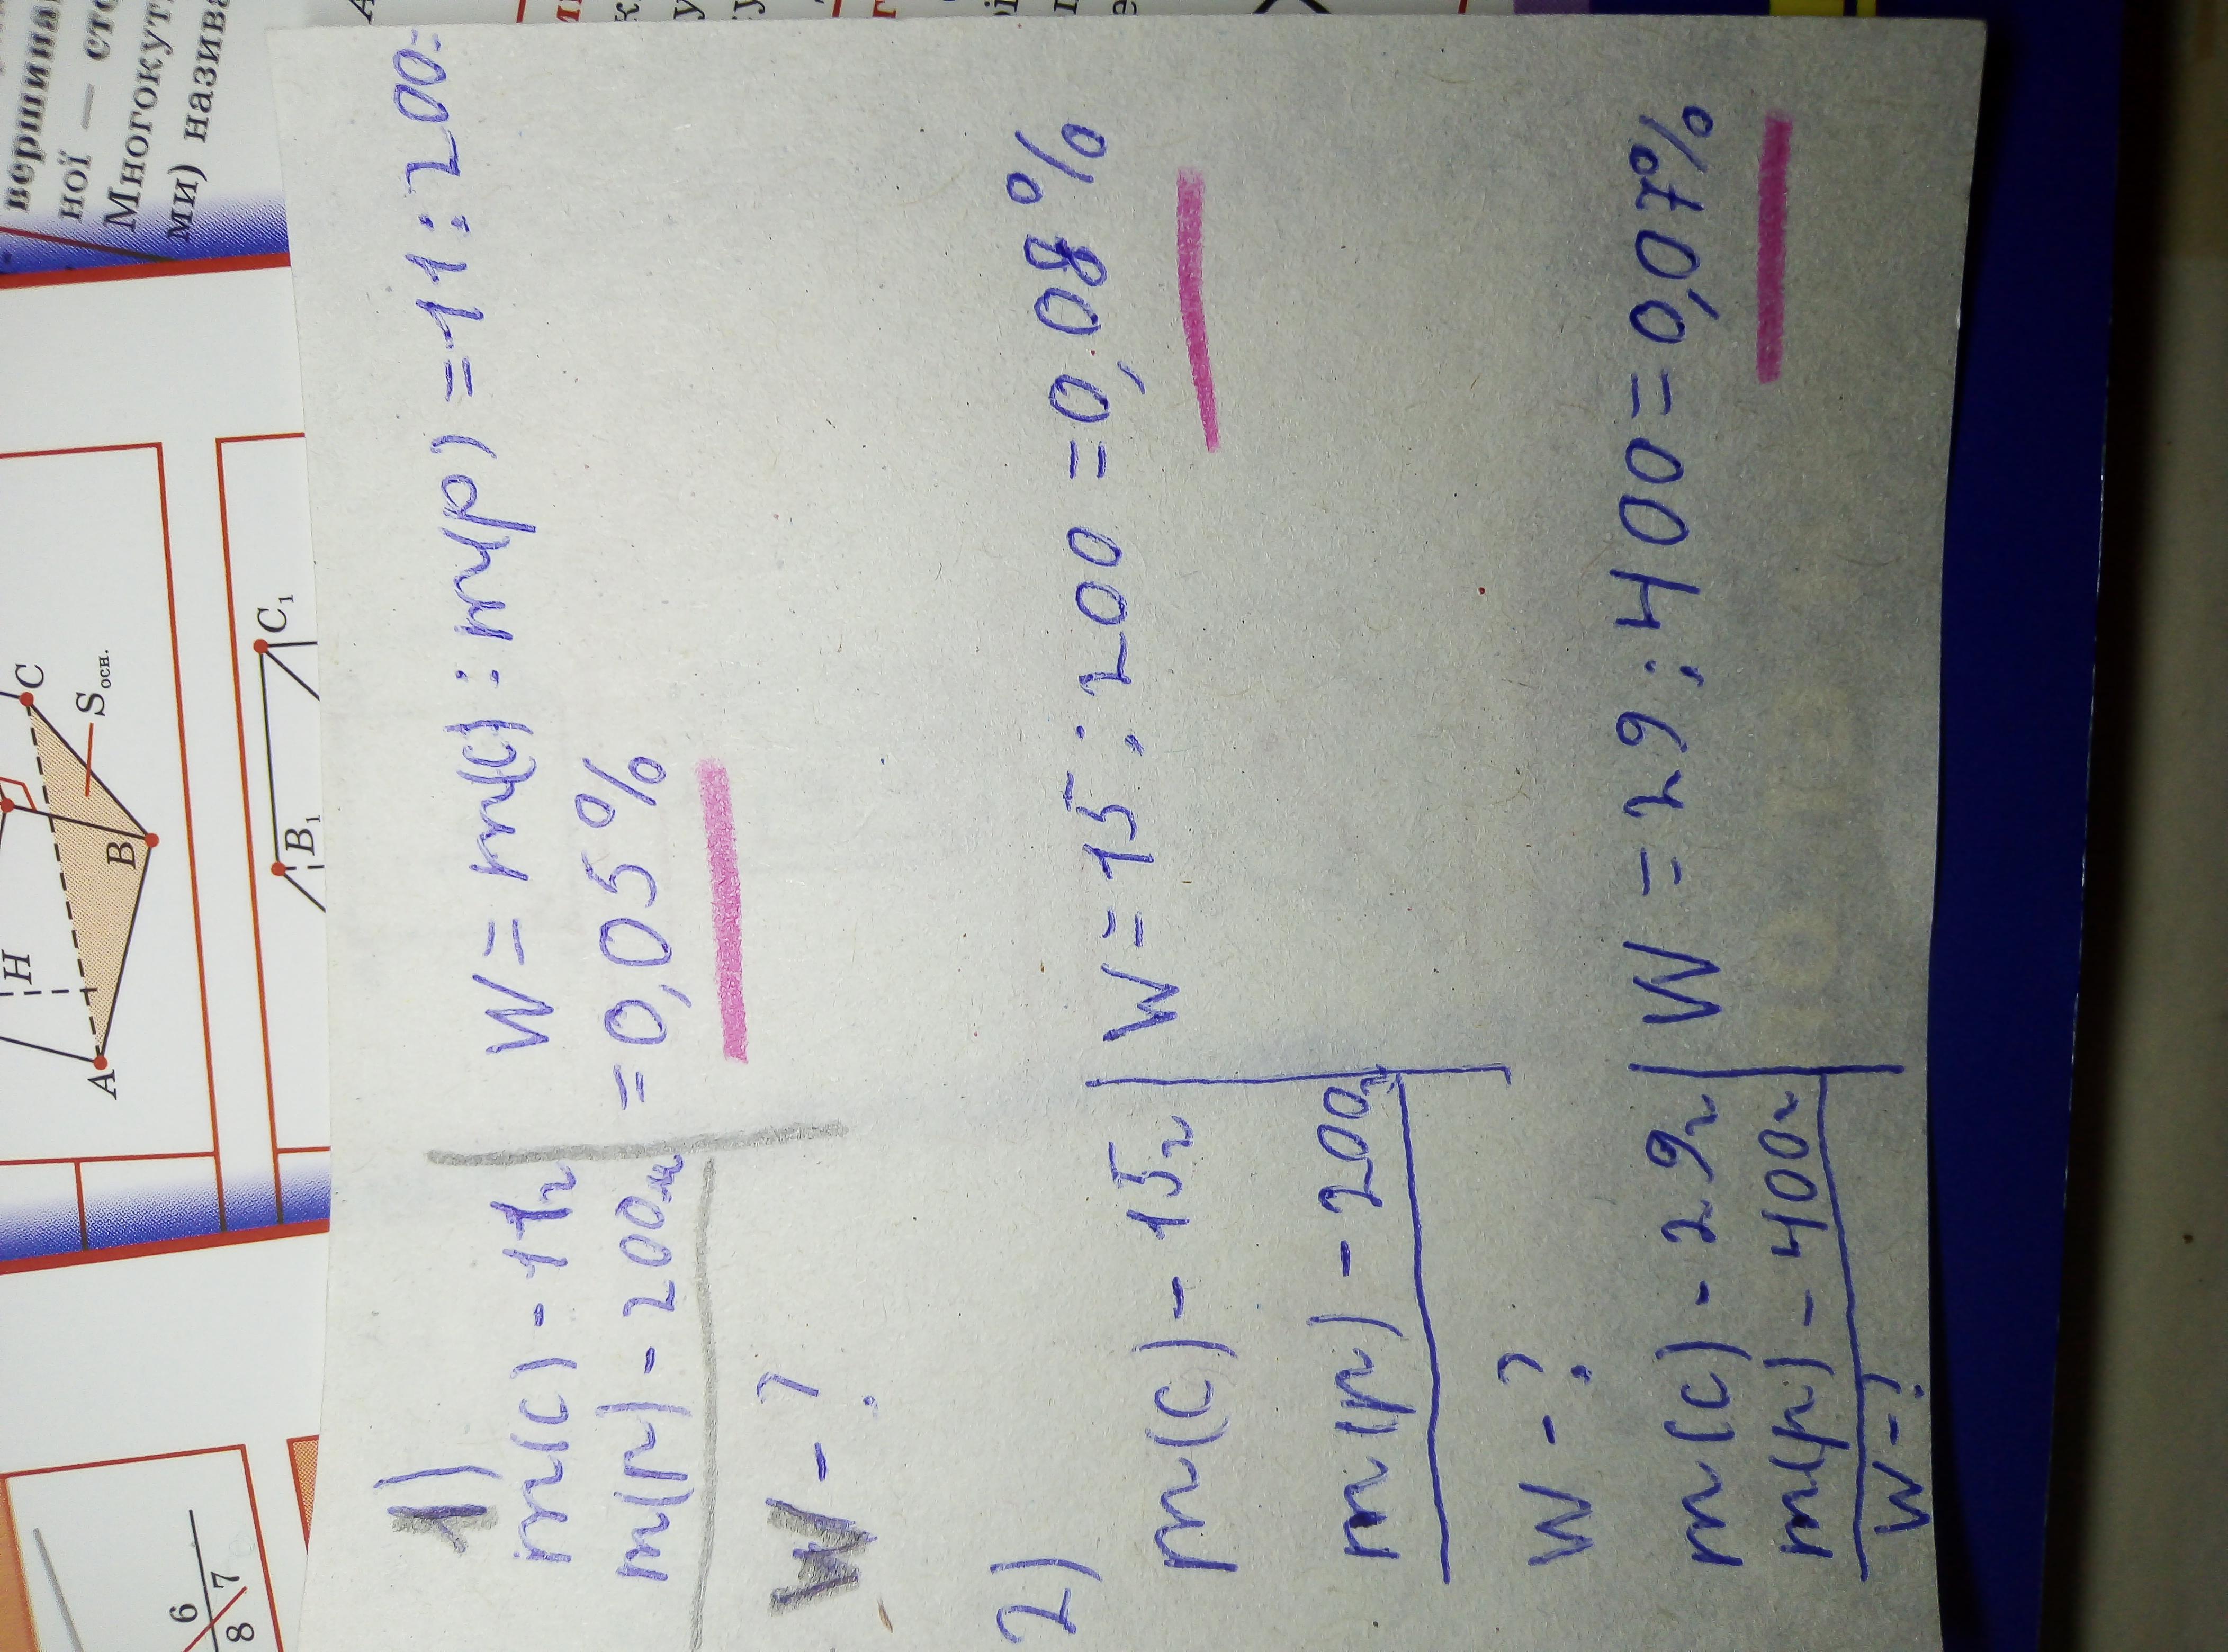 1)
m(c) - 11г
m(p) - 200г
W - ?
W = m(c) : m(p) = 11 : 200 =
= 0,05%
2)
m(c) - 15г
m(p) - 200г
W - ?
W = 15 : 200 = 0,08%
m(c) - 29г
m(p) - 400г
W - ?
W = 29 : 400 = 0,07%
вершина
ної — сто
Многокут
ми) назива
H
A
B
C
Sосн.
B1
C1
6
8
7